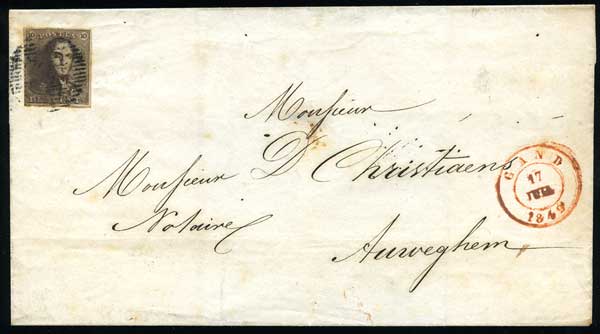 10 POSTES 10
Monsieur
D Christiaens
Monsieur
Notaire
Auweghem
GAND
17
JUIL
1849